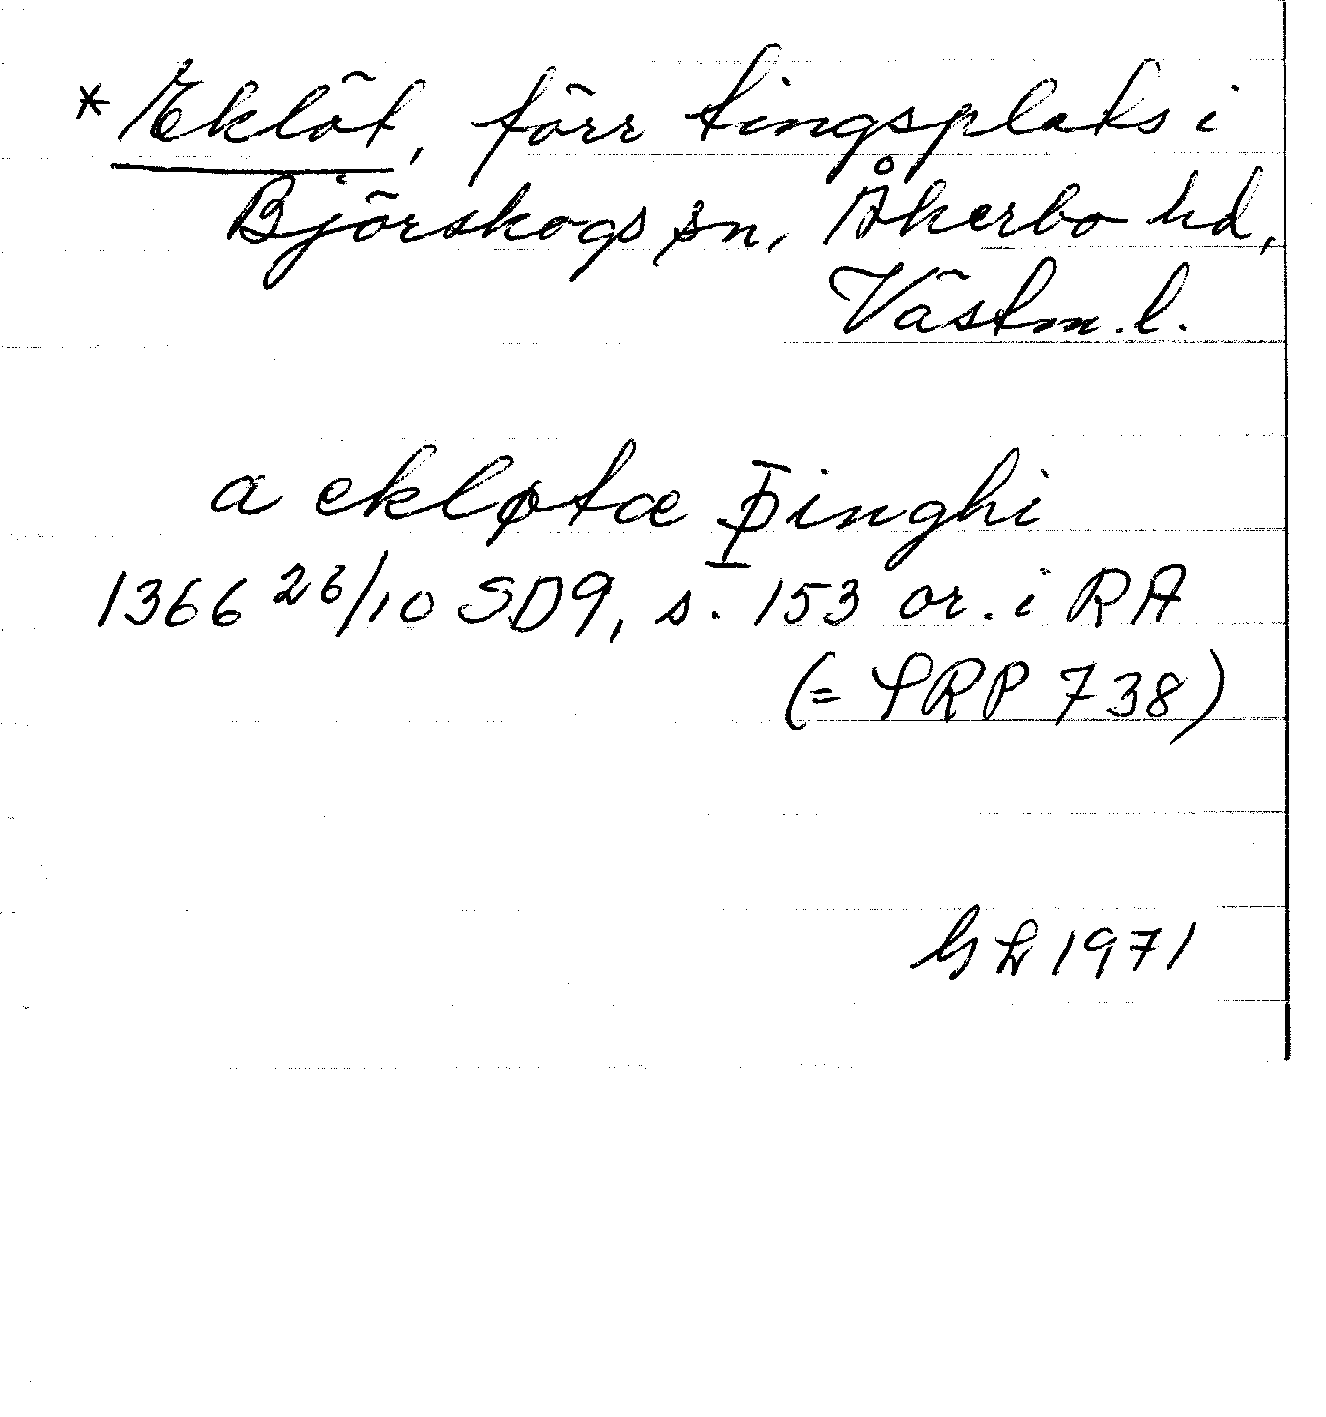 *Eklöt, förr tingsplats i
Björskogs sn, Åkerbo hd,
Västm. l.
a ekløtæ þinghi
1366 26/10 SD9, s. 153 or. i RA
(= SRP 738)
GL 1971